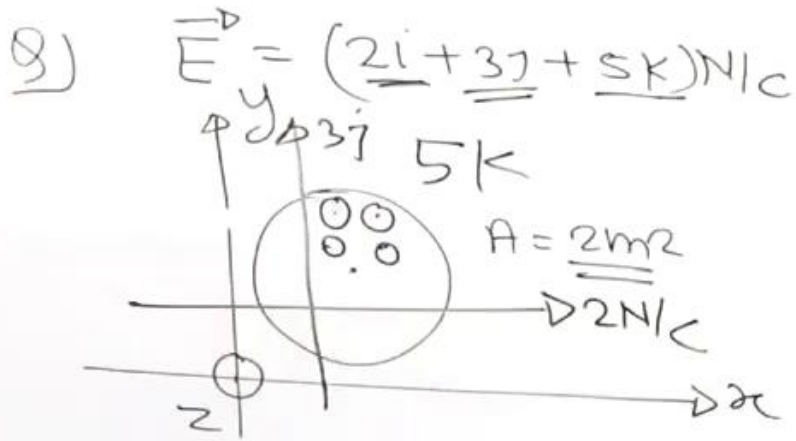 Q) E = (2i + 3j + 5K)N/C
y 3j 5K
A = 2m2
2N/C
z x